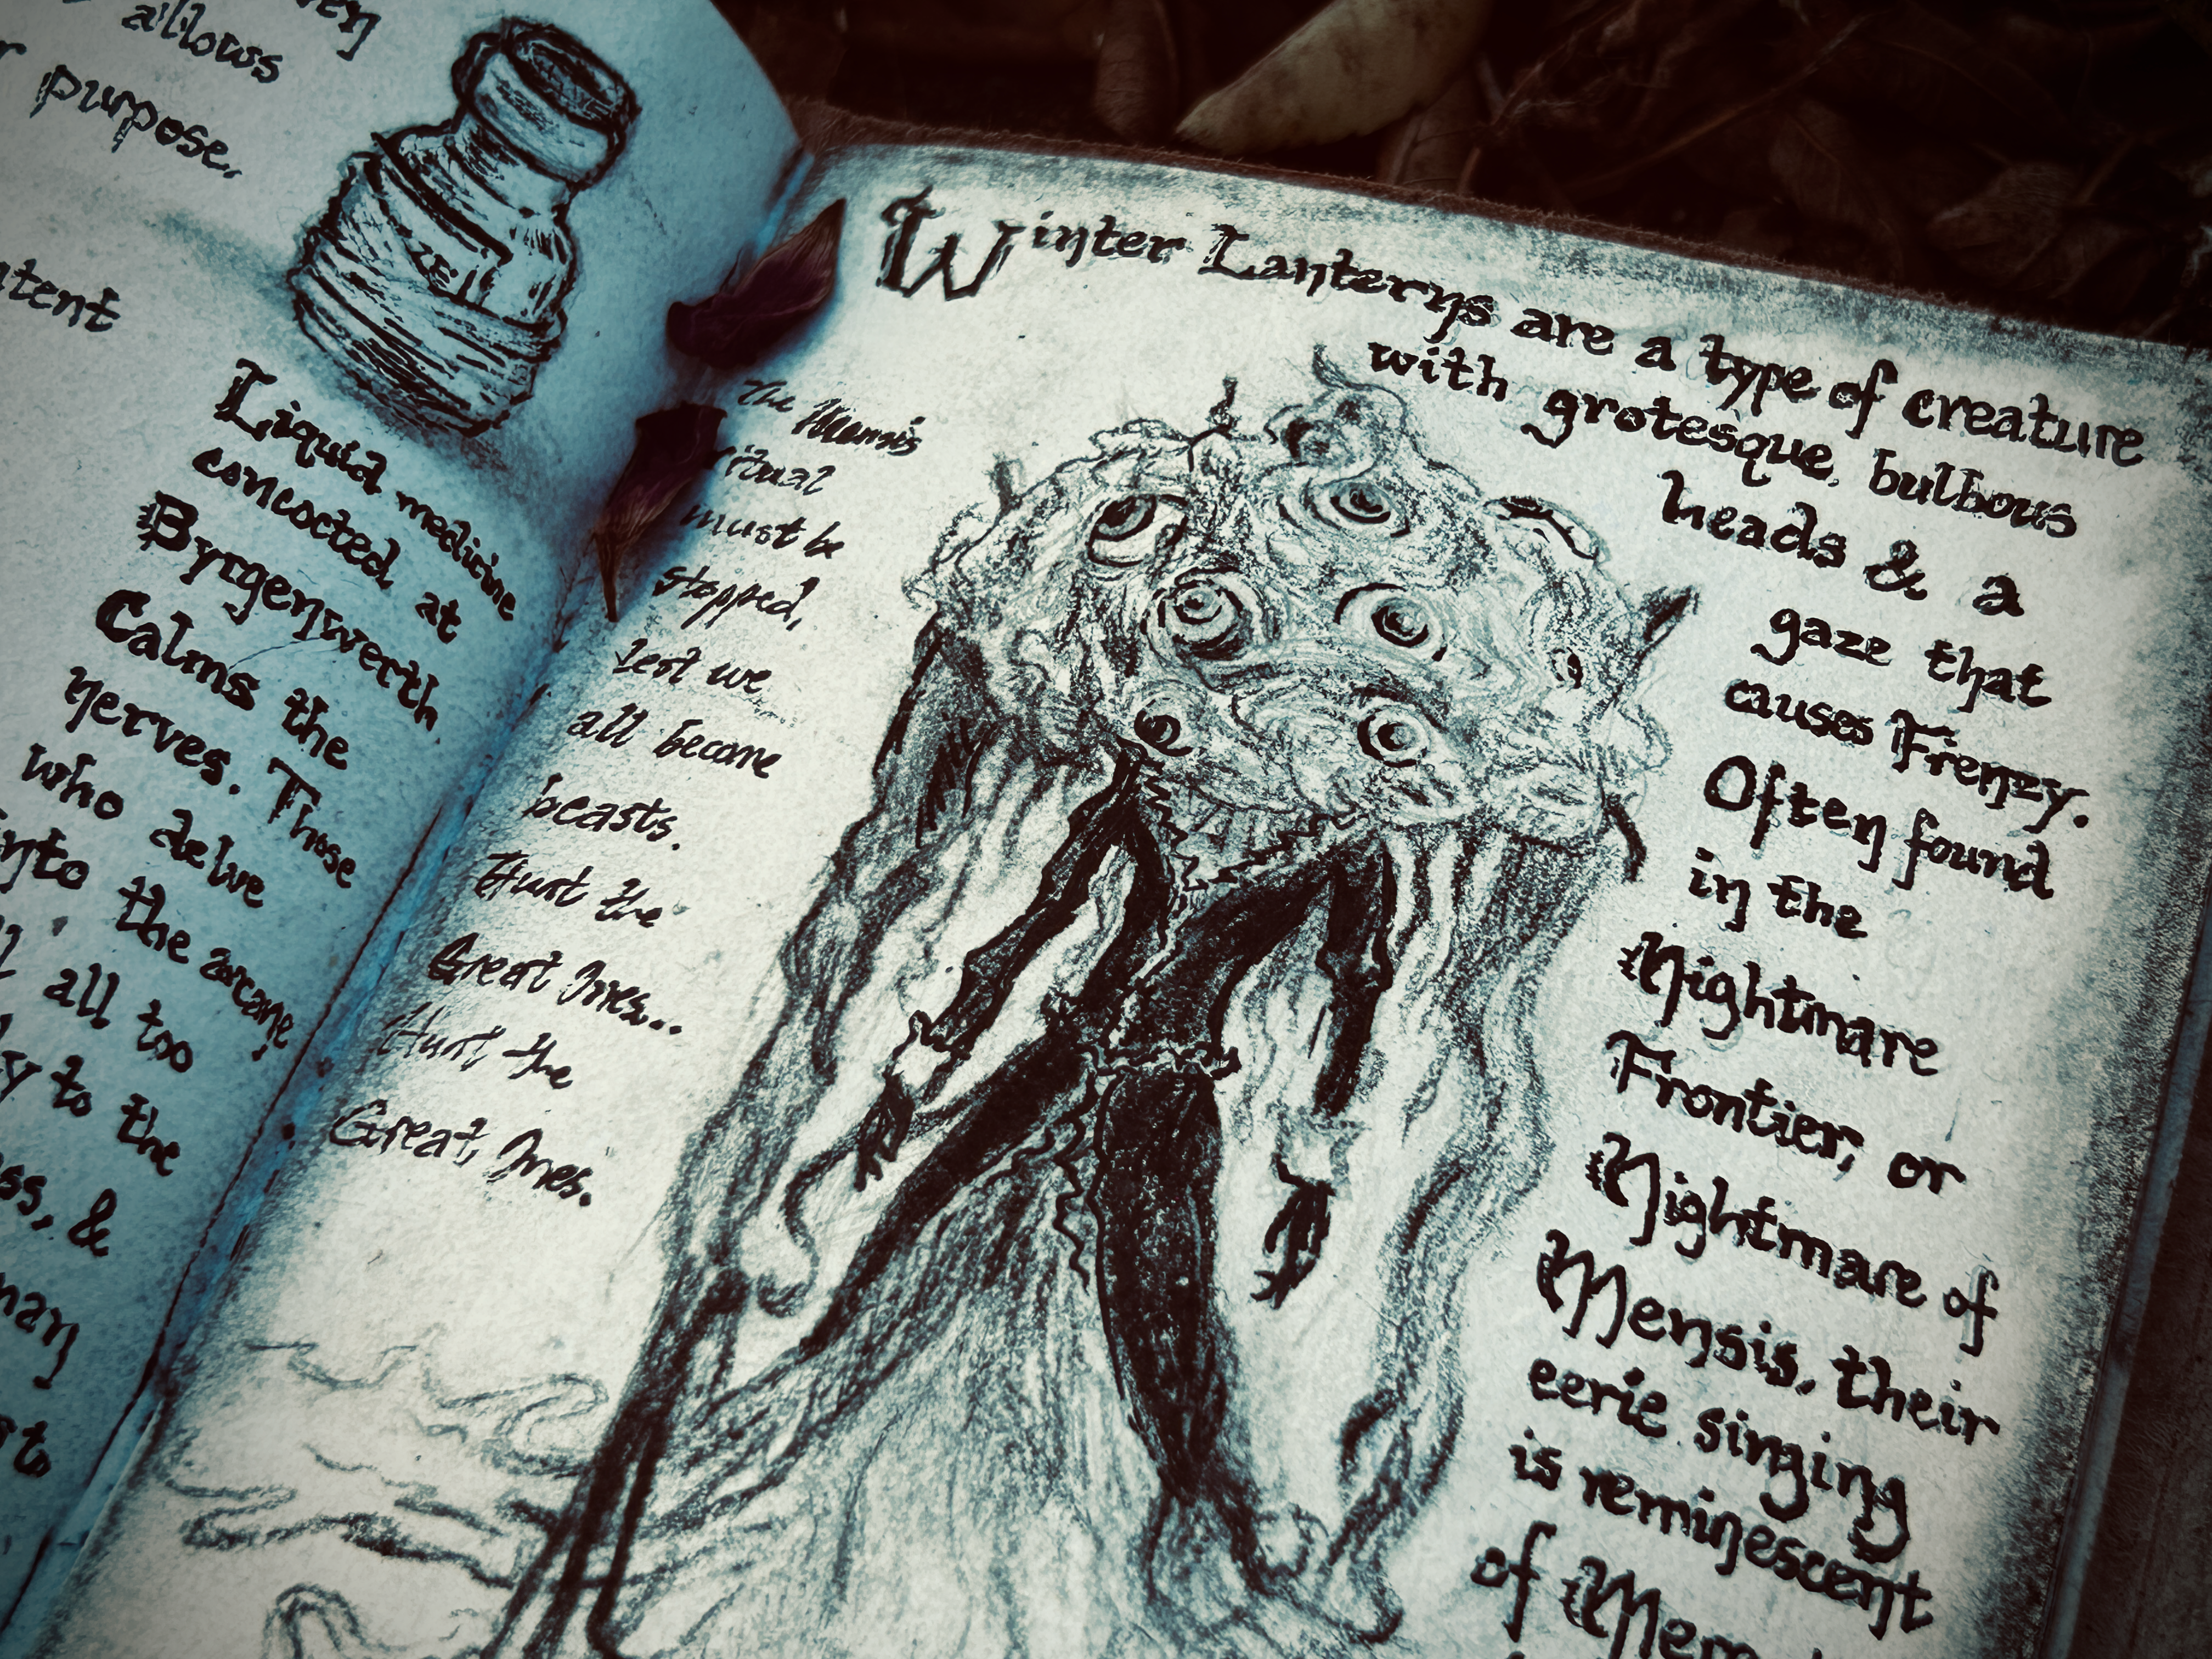 allows
purpose.
Liquid medicine
concocted at
Byrgenwerth.
Calms the
nerves. Those
who delve
into the arcane
all too
to the
&
Winter Lanterns are a type of creature
with grotesque, bulbous
heads & a
gaze that
causes Frenzy.
Often found
in the
Nightmare
Frontier, or
Nightmare of
Mensis, their
eerie singing
is reminescent
of
The Mensis
ritual
must be
stopped,
lest we
all become
beasts.
Hunt the
Great Ones...
Hunt the
Great Ones.